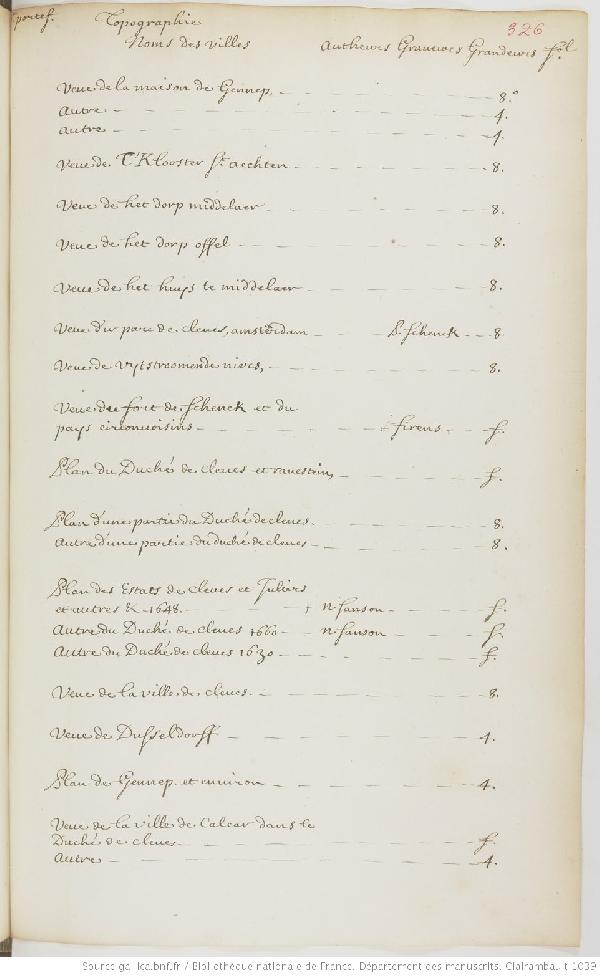 portef. Topographie 326
Noms des villes Autheurs Graueures Grandeurs fol
Veue de la maison de Gennep, 8.°
Autre 4.
Autre 4.
Veue de T'Klooster St. aechten 8.
Veue de het dorp middelaer 8.
Veue de het dorp offel 8.
Veue de het huys te middelaer 8.
Veue d'ur parc de cleues, amsterdam P. schenck 8
Veue de vytstroomende nives, 8.
Veue du fort de schenck et du
pays circonuoisins firens f.
Plan du Duché de cleues et rauestein, f.
Plan d'une partie du Duché de cleues. 8.
Autre d'une partie du duché de cleues 8.
Plan des Estats de cleues et Juliers
et autres & 1648. + n. sanson f.
Autre du Duché de cleues 1660 n. sanson f.
Autre du Duché de cleues 1630 f.
Veue de la ville de cleues. 8.
Veue de Dusseldorff 4.
Plan de Gennep et enuiron 4.
Veue de la ville de Calcar dans le
Duché de cleues f.
Autre 4.
Source gallica.bnf.fr / Bibliothèque nationale de France. Département des manuscrits. Clairambault 1039